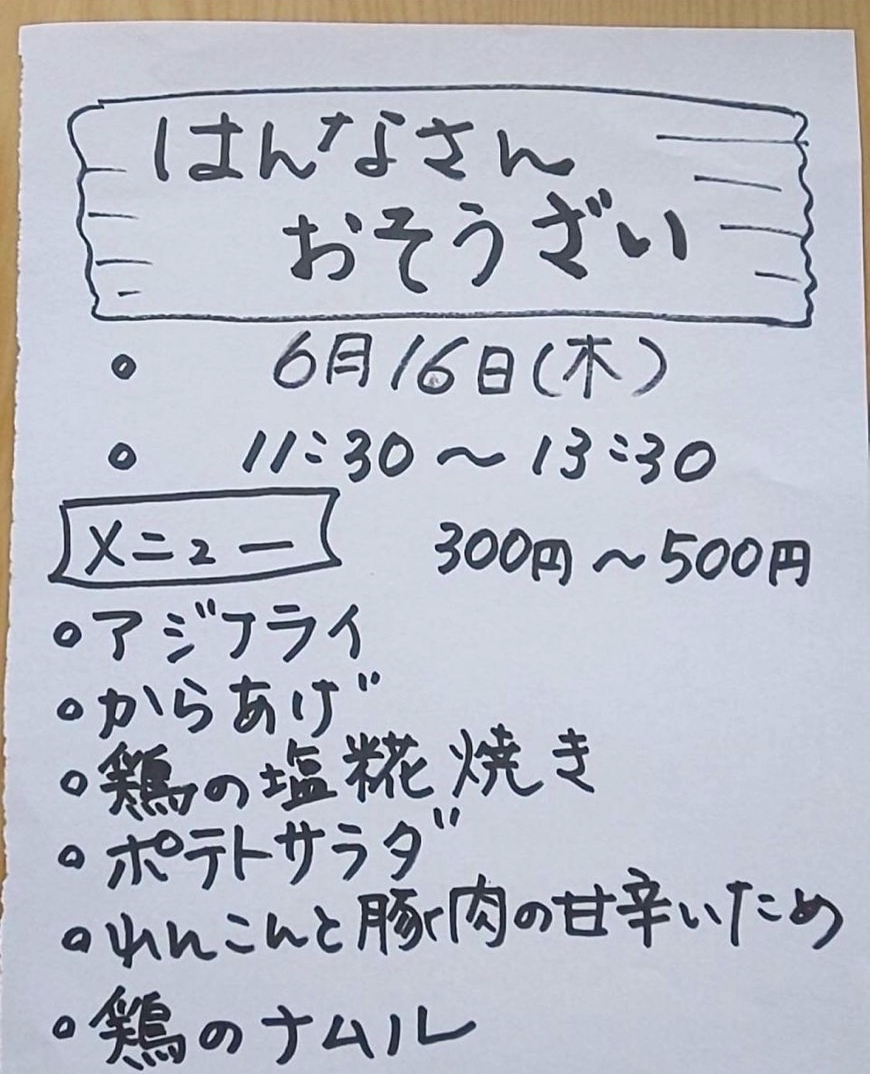 はんなさん
おそうざい
○ 6月16日(木)
○ 11:30〜13:30
メニュー 300円〜500円
○アジフライ
○からあげ
○鶏の塩糀焼き
○ポテトサラダ
○れんこんと豚肉の甘辛いため
○鶏のナムル